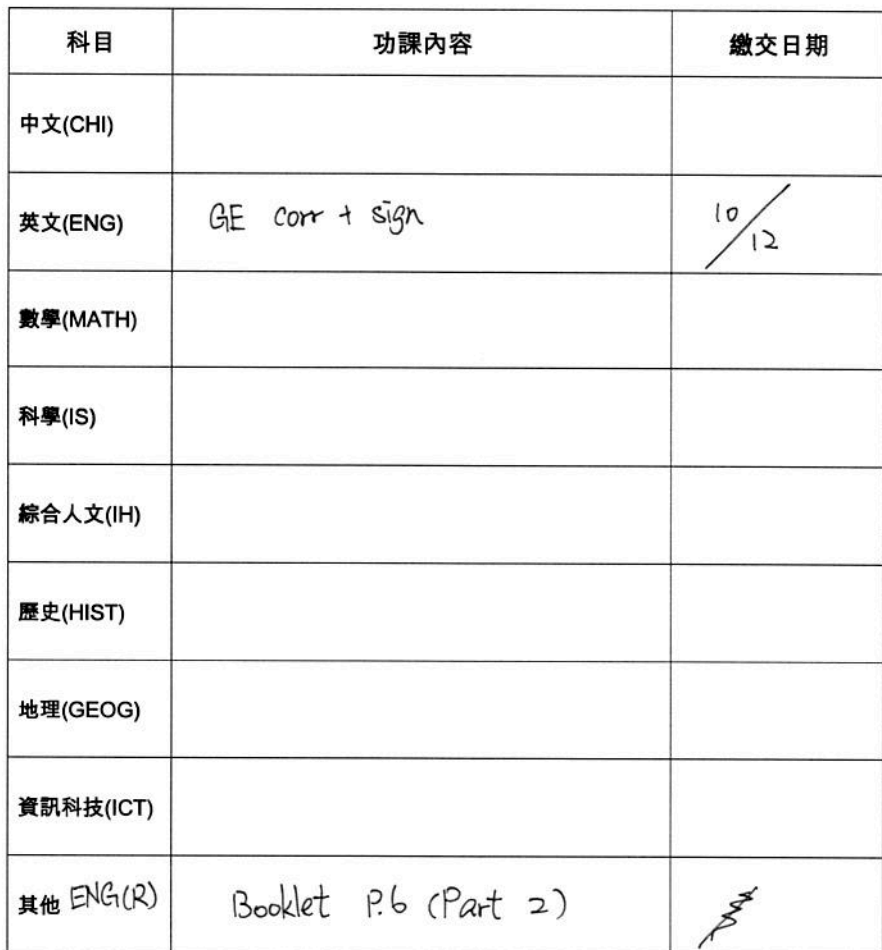 科目 功課內容 繳交日期
中文(CHI)
英文(ENG) GE corr + sign 10/12
數學(MATH)
科學(IS)
綜合人文(IH)
歷史(HIST)
地理(GEOG)
資訊科技(ICT)
其他 ENG(R) Booklet P.6 (Part 2)